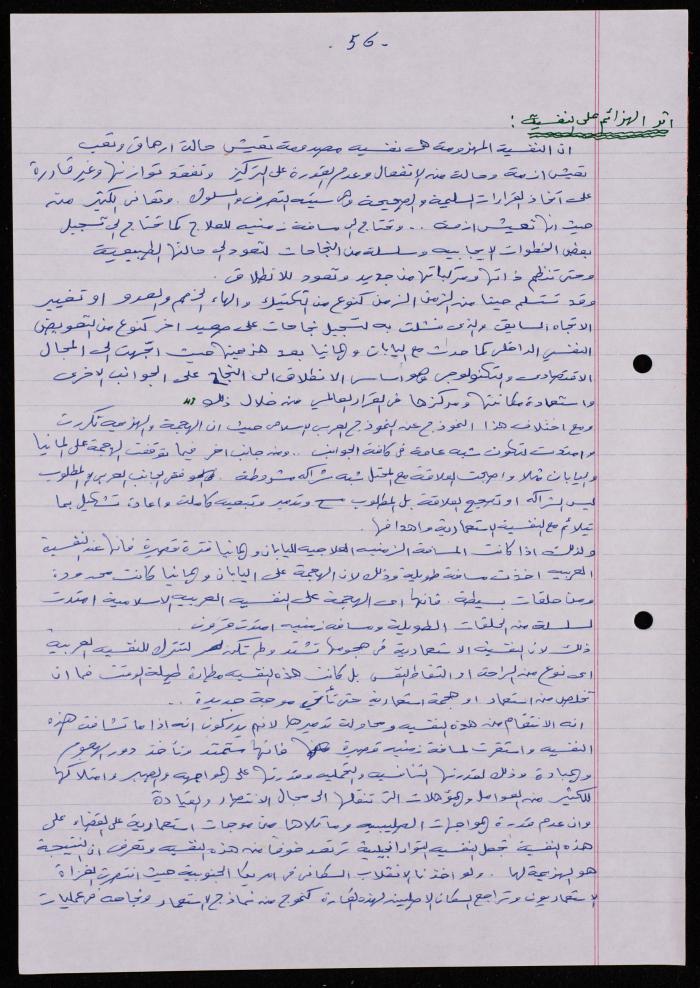 - 56 -
اثر الهزائم على النفسية :
ان النفسية المهزومة هي نفسية مصدومة تعيش حالة ارهاق وتعب
تعيش ازمة وحالة من الانفعال وعدم القدرة على التركيز وتفقد توازنها وغير قادرة
على اتخاذ القرارات السليمة والصحيحة وحاسيته التصرف والسلوك . وتعاني الكثير منه
حيث انها تعيش ازمة .. وتحتاج الى مسافة زمنيه للعلاج كما تحتاج الى تسجيل
بعض الخطوات الايجابيه وسلسلة من النجاحات لتعود الى حالتها الطبيعية
وحتى تنظم ذاتها ومتركباتها من جديد وتعود للانطلاق .
وقد تستسلم حينا من الزمن كنوع من التكتيك والهاء الخصم والعدو او تغيير
الاتجاه السابق والذي فشلت به لتسجيل نجاحات على صعيد اخر كنوع من التعويض
النفسي الداخلي كما حدث مع اليابان والمانيا بعد هزيمتها حيث اتجهت الى المجال
الاقتصادي والتكنولوجي وهو اساس الانطلاق الى النجاح على الجوانب الاخرى
واستعادة مكانتها ومركزها في القرار العالمي من خلال ذلك
ومع اختلاف هذا النموذج عن النموذج العربي الاسلامي حيث ان الهجمة والهزيمة تكررت
وامتدت لتكون شبه عامة في كافة الجوانب .. ومن جانب اخر فيما توقفت الهجمة على المانيا
واليابان مثلا واصبحت العلاقة مع المحتل شبه شراكه مشروطة . فالموقف بالجانب العربي والمطلوب
ليس الشراكه او تصحيح العلاقة بل المطلوب مسح وتدمير وتبعيه كاملة واعادة تشكيل بما
يتلائم مع النفسية الاستعمارية واهدافها .
ولذلك اذا كانت المسافة الزمنيه العلاجيه لليابان والمانيا فترة قصيرة فانها عند النفسية
العربيه اخذت مسافة طويلة وذلك لان الهجمة على اليابان والمانيا كانت محدودة
ومن حلقات بسيطة . فانها اي الهجمة على النفسيه العربيه الاسلامية امتدت
لسلسلة من الحلقات الطويلة ومسافه زمنيه امتدت قرون .
ذلك لان النفسية الاستعمارية في هجومها تشتد ولم تكن لتترك للنفسيه العربية
اي نوع من الراحة او التقاط النفس بل كانت هذه النفسيه مطاردة طيلة الوقت فما ان
تتخلص من استعمار او هجمة استعمارية حتى تأتي موجة جديدة ..
انه الانتقام من هذه النفسيه ومحاولة تدميرها لانهم يدركون انه اذا ما تشافت هذه
النفسيه واستقرت لمسافة زمنيه قصيرة فانها ستمتد وتأخذ دور الهجوم
والمبادرة وذلك لقدرتها التنافسيه والتحليه وقدرتها على المواجهه والصبر وامتلاكها
للكثير من العوامل والمؤهلات التي تنقلها الى مجال الانتصار والقيادة
وان عدم قدرة المواجهات الصليبيه وما تلاها من موجات استعمارية على القضاء على
هذه النفسية تجعل النفسيه التوراه انجيلية ترتعد خوفا من هذه النفسيه وتعرف ان النتيجة
هو الهزيمة لها . ولو اخذنا الانقلاب السكاني في امريكا الجنوبية حيث انتصر الغزاة
الاستعماريون وتراجع السكان الاصليين لهذه القارة كنموذج من نماذج الاستعمار ونجاحه في عمليات